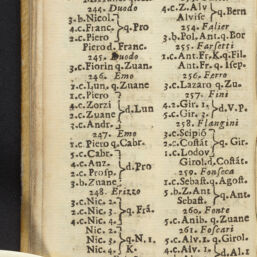 244. Duodo
3.b.Nicol.
4.c.Franc. q. Pro
2.c. Piero
Piero d. Franc.
245. Duodo
3.c.Fiorin q. Zuan.
246. Emo
2.c.Lun. q. Zuane
1.c. Piero
4.c. Zorzi
2.c. Zuane d. Lun
3.c. Andr.
247. Emo
1.c. Piero q. Cabr.
5.c. Cabr.
4.c. Anz. d. Pro
2.c. Prosp.
3.b. Zuane
248. Erizzo
3.c. Nic. 2.
2.c. Nic. 3. q. Frã.
4.c. Nic. 4.
Nic. 2.
Nic. 3. q. N. 1.
Nic. 4. K.
4.c. Z. Alv q. Bern
Alvise
254. Falier
3.b. Pol. Ant. q. Bor
255. Farsetti
1.c. Ant. Fr. K. q. Fil.
Ant. Fr. q. Isep.
256. Ferro
3.c. Lazaro q. Zu.
257. Fini
4.2. Gir. 1. d. V. P.
5.c. Gir. 3.
258. Flangini
3.c. Scipiõ
2.c. Costãt q. Gir.
1.c. Lodov
Girol. d. Costãt.
259. Fonseca
1.c. Sebast. q. Agost.
5.b. Z. Ant q. Ant.
Sebast
260. Fonte
5.c. Anib. q. Zuane
261. Foscari
5.c. Alv. 1. q. Girol.
4.c. Alv. d. Al. 1